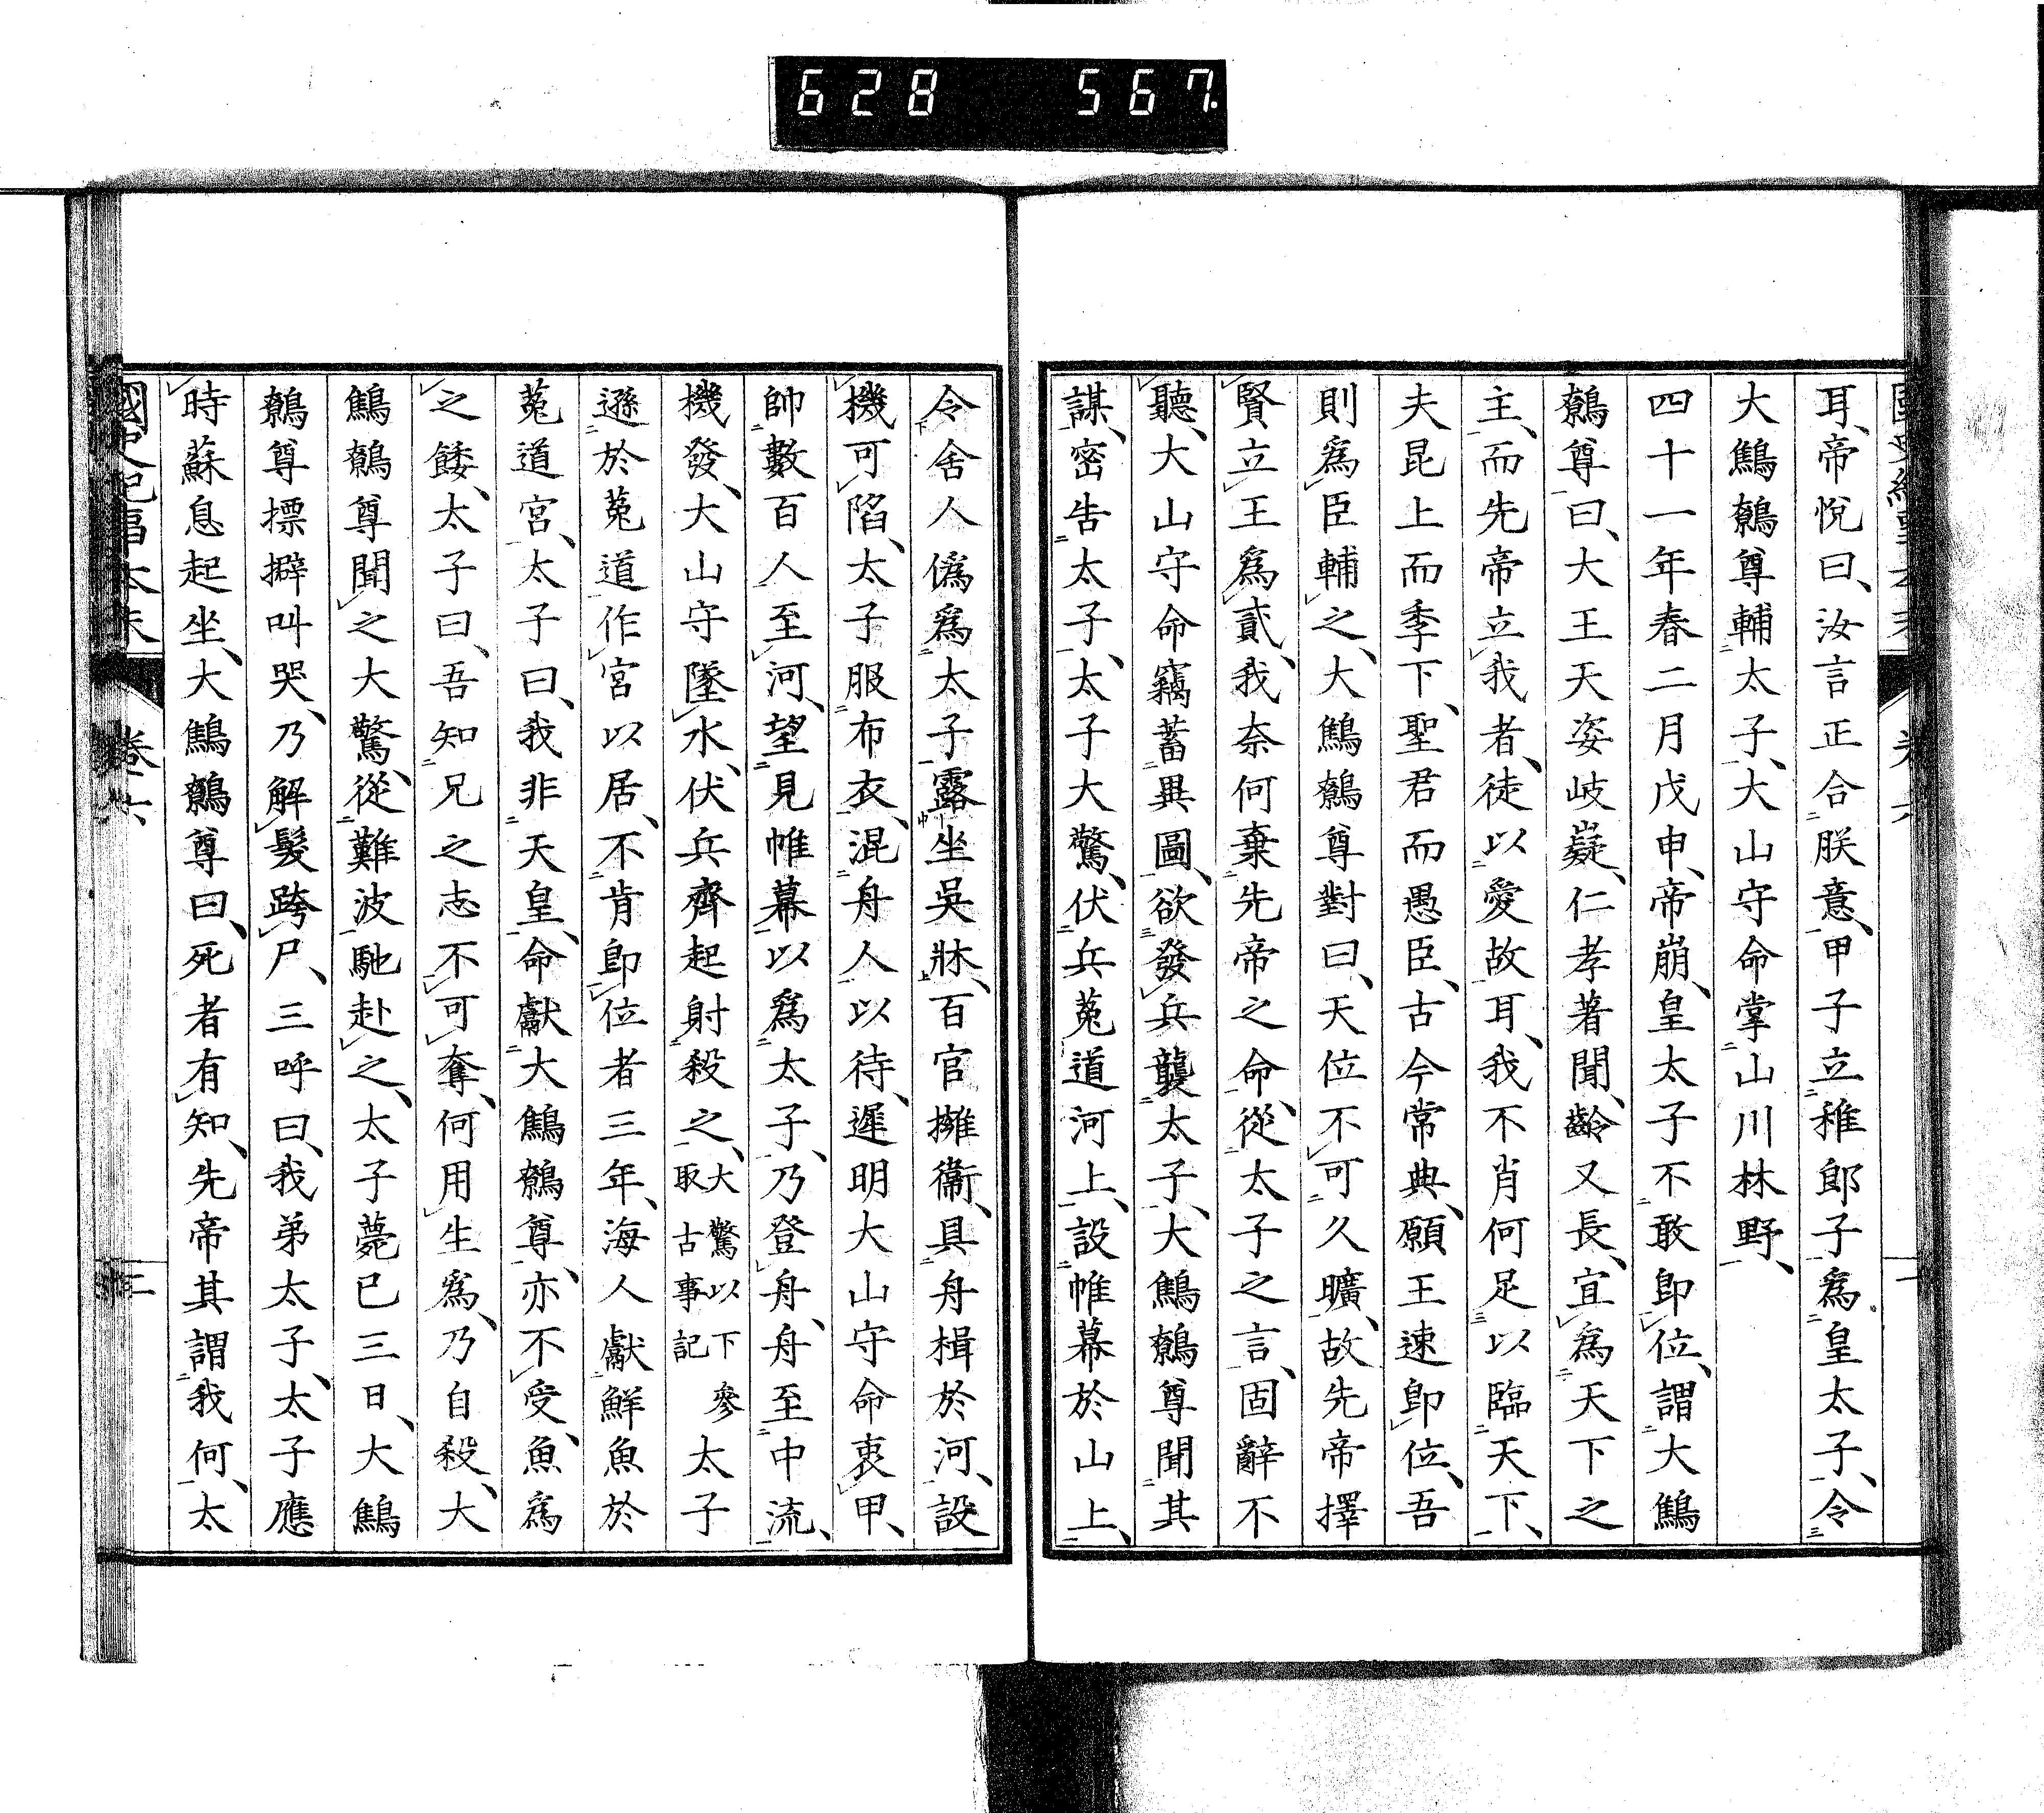 628 567
耳、帝悅曰、汝言正合朕意、甲子立稚郎子爲皇太子、令
大鷦鷯尊輔太子、大山守命掌山川林野、
四十一年春二月戊申、帝崩、皇太子不敢卽位、謂大鷦
鷯尊曰、大王天姿岐嶷、仁孝著聞、齡又長、宜爲天下之
主、而先帝立我者、徒以愛故耳、我不肖何足以臨天下、
夫昆上而季下、聖君而愚臣、古今常典、願王速卽位、吾
則爲臣輔之、大鷦鷯尊對曰、天位不可久曠、故先帝擇
賢立王爲貳、我奈何棄先帝之命、從太子之言、固辭不
聽、大山守命竊蓄異圖、欲發兵襲太子、大鷦鷯尊聞其
謀、密告太子、太子大驚、伏兵菟道河上、設帷幕於山上、
令舍人僞爲太子露坐吳牀、百官擁衞、具舟楫於河、設
機可陷、太子服布衣、混舟人以待、遲明大山守命衷甲、
帥數百人至河、望見帷幕以爲太子、乃登舟、舟至中流、
機發、大山守墜水、伏兵齊起射殺之、大驚以下參取古事記太子
遜於菟道作宮以居、不肯卽位者三年、海人獻鮮魚於
菟道宮、太子曰、我非天皇、命獻大鷦鷯尊、亦不受、魚爲
之餒、太子曰、吾知兄之志不可奪、何用生爲、乃自殺、大
鷦鷯尊聞之大驚、從難波馳赴之、太子薨已三日、大鷦
鷯尊摽擗叫哭、乃解髮跨尸、三呼曰、我弟太子、太子應
時蘇息起坐、大鷦鷯尊曰、死者有知、先帝其謂我何、太
國史紀事本末 卷六 二